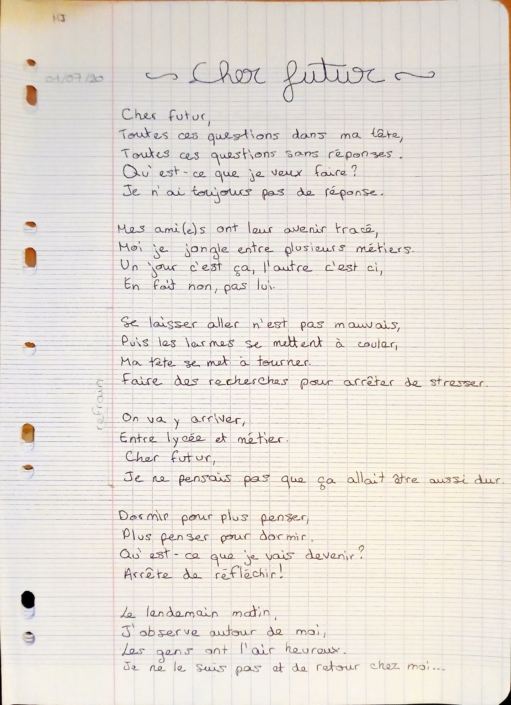 1/3
01/07/20
~ Cher futur ~
Cher futur,
Toutes ces questions dans ma tête,
Toutes ces questions sans réponses.
Qu'est-ce que je veux faire?
Je n'ai toujours pas de réponse.
Mes ami(e)s ont leur avenir tracé,
Moi je jongle entre plusieurs métiers.
Un jour c'est ça, l'autre c'est ci,
En fait non, pas lui.
Se laisser aller n'est pas mauvais,
Puis les larmes se mettent à couler,
Ma tête se met à tourner.
Faire des recherches pour arrêter de stresser.
refrain
On va y arriver,
Entre lycée et métier.
Cher futur,
Je ne pensais pas que ça allait être aussi dur.
Dormir pour plus penser,
Plus penser pour dormir.
Qu'est-ce que je vais devenir?
Arrête de réfléchir!
Le lendemain matin,
J'observe autour de moi,
Les gens ont l'air heureux.
Je ne le suis pas et de retour chez moi...